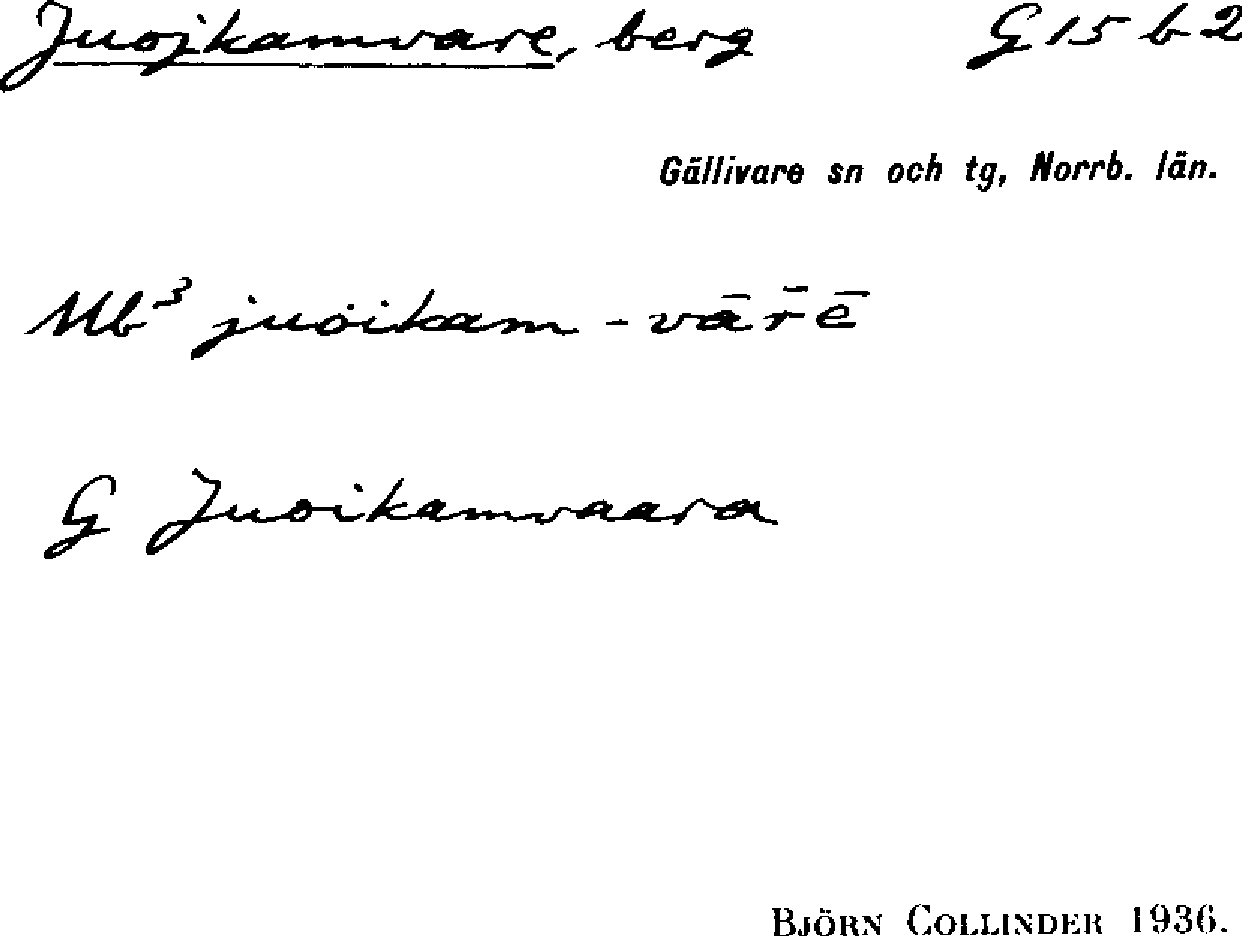 Juojkamvare, berg G 15 b 2
Gällivare sn och tg, Norrb. län.
Mb³ juȯikam-vār̄ē
G Juoikamvaara
BJÖRN COLLINDER 1936.